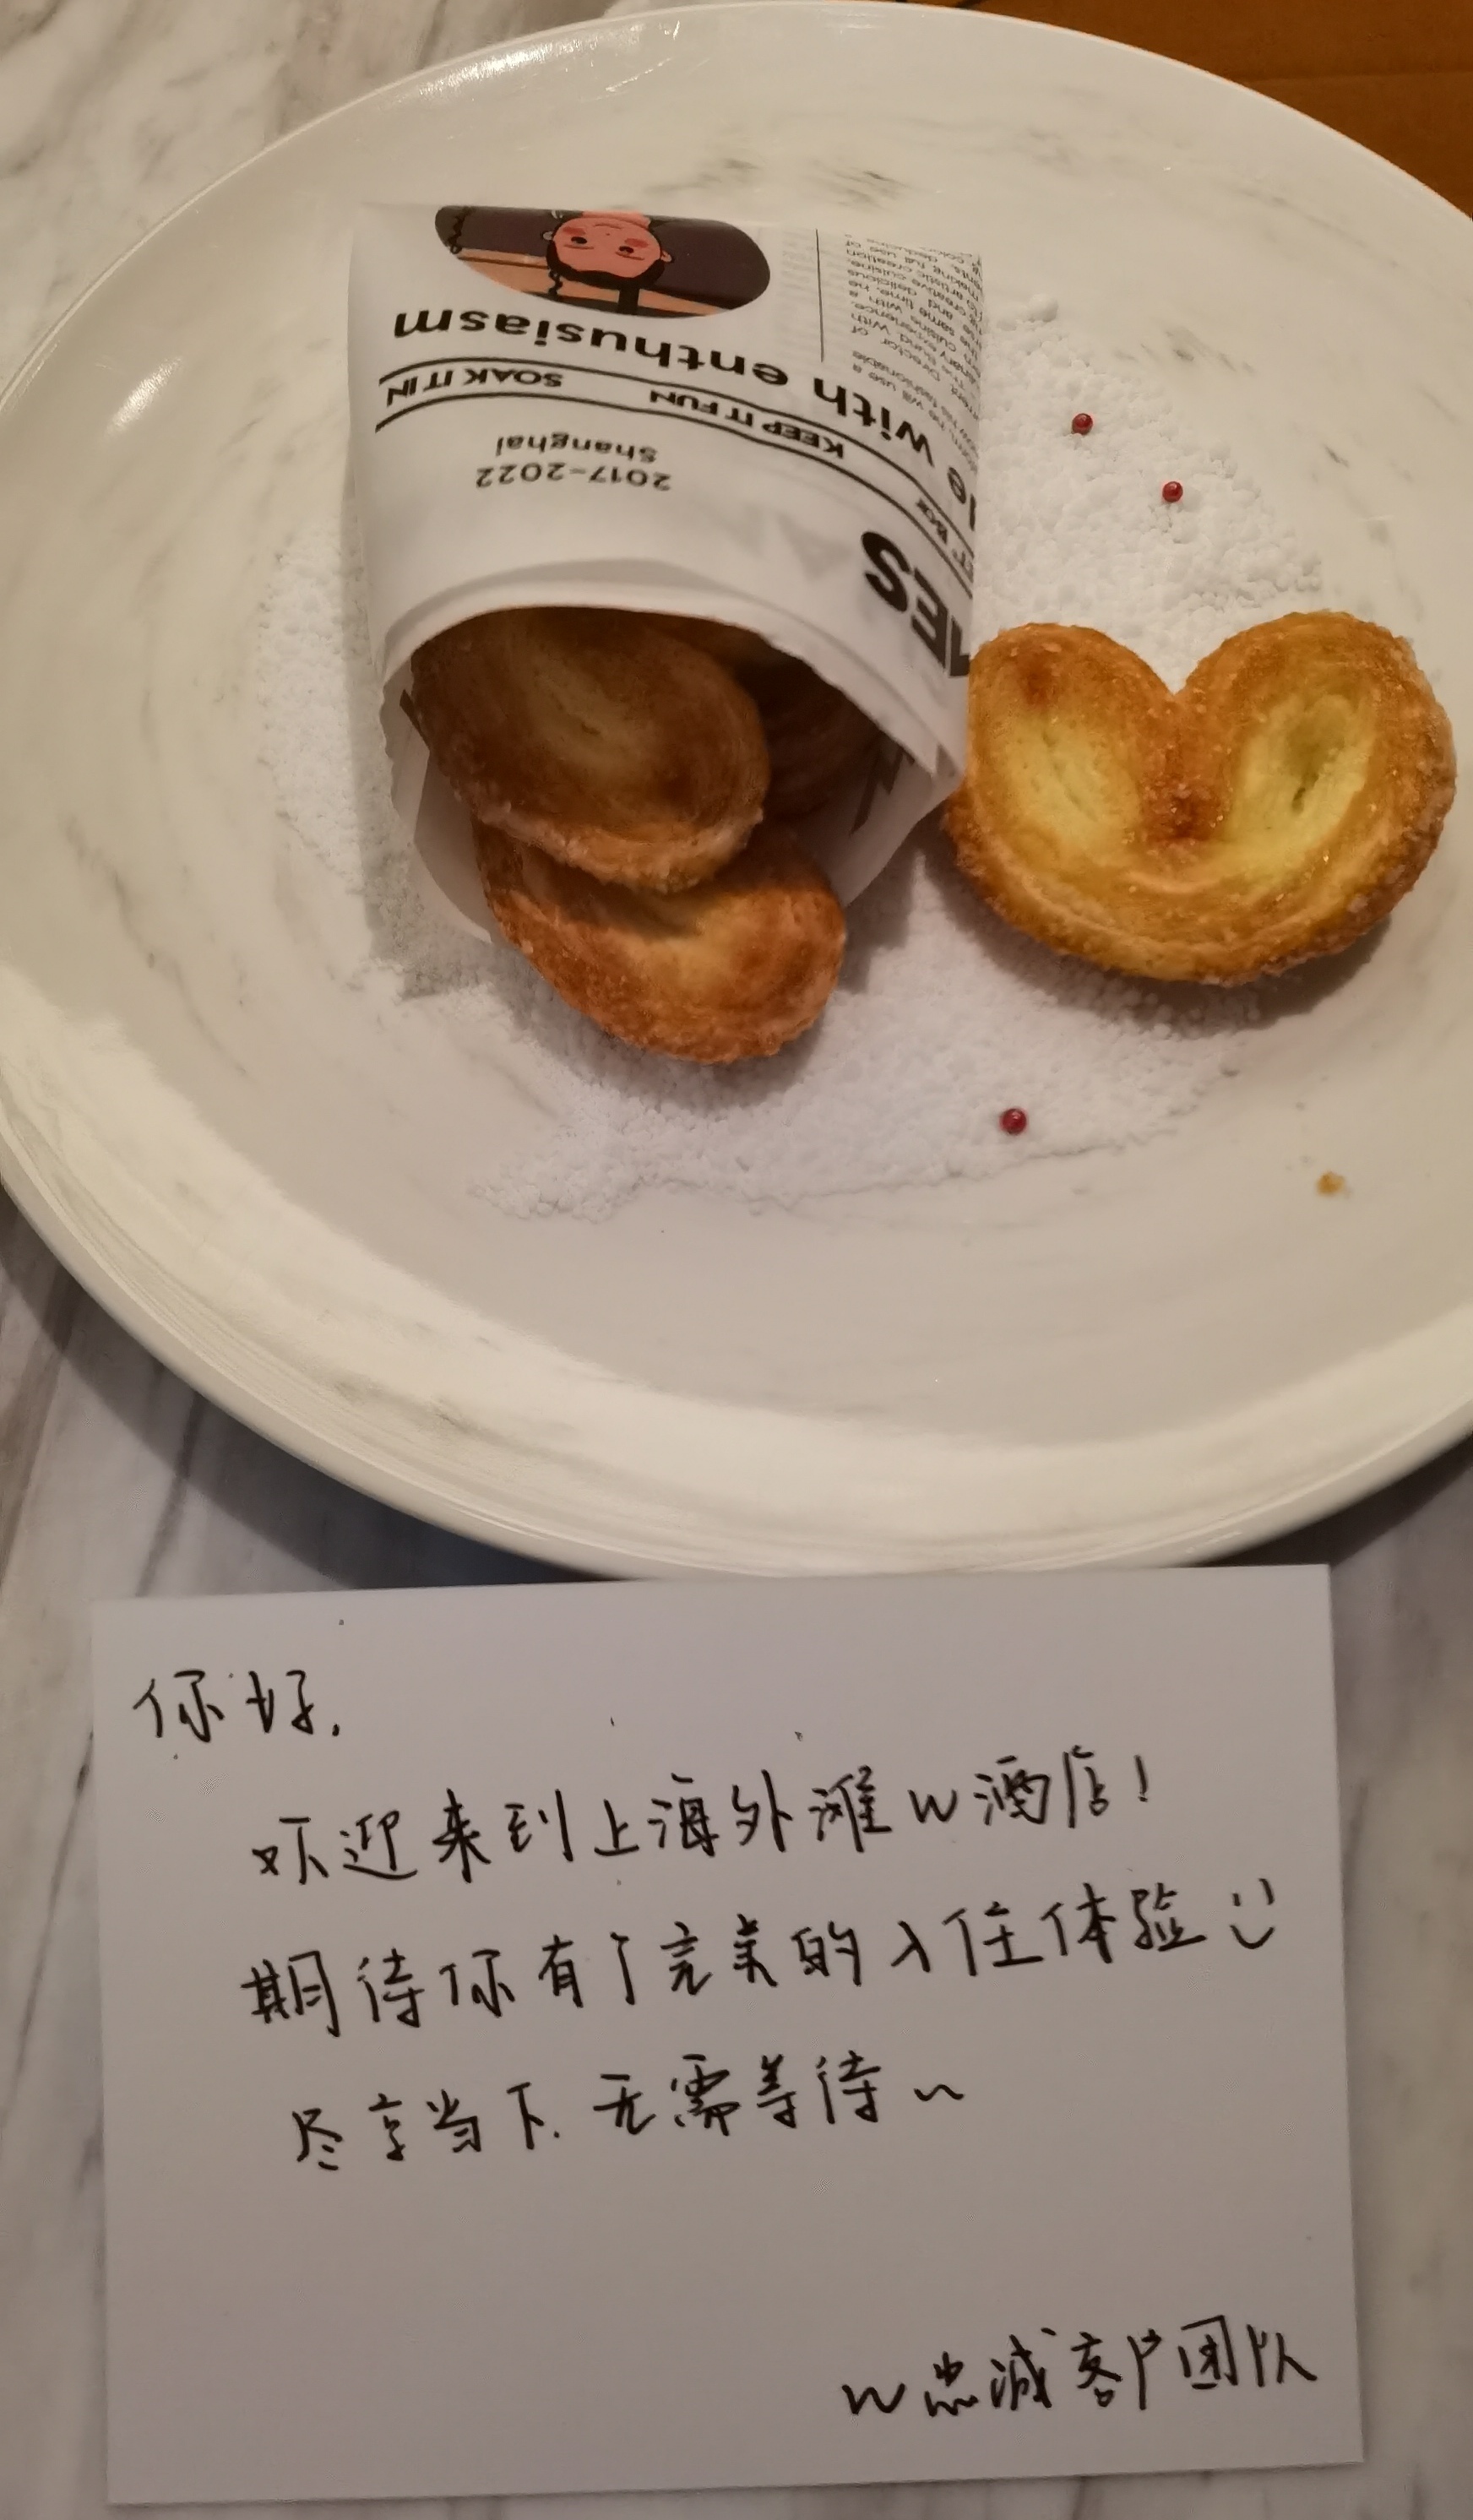 with enthusiasm
KEEP IT FUN
SOAK IT IN
2017-2022
Shanghai
你好,
欢迎来到上海外滩W酒店!
期待你有个完美的入住体验
尽享当下.无需等待~
W忠诚客户团队